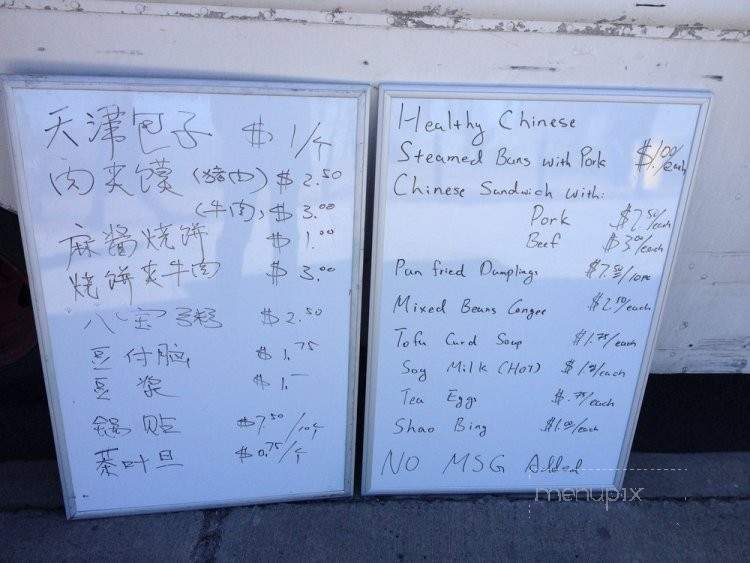 天津包子 $ 1/个
肉夹馍 (猪肉) $ 2.50
(牛肉) $ 3.00
麻酱烧饼 $ 1.00
烧饼夹牛肉 $ 3.00
八宝粥 $ 2.50
豆付脑 $ 1.75
豆浆 $ 1.-
锅贴 $ 7.50/10个
茶叶旦 $ 0.75/个
Healthy Chinese
Steamed Buns with Pork $1.00/each
Chinese Sandwich with:
Pork $2.50/each
Beef $3.00/each
Pan fried Dumplings $7.50/10pc
Mixed Beans Congee $2.50/each
Tofu Curd Soup $1.75/each
Soy Milk (HOT) $ /each
Tea Eggs $.75/each
Shao Bing $1.00/each
NO MSG Added
menupix